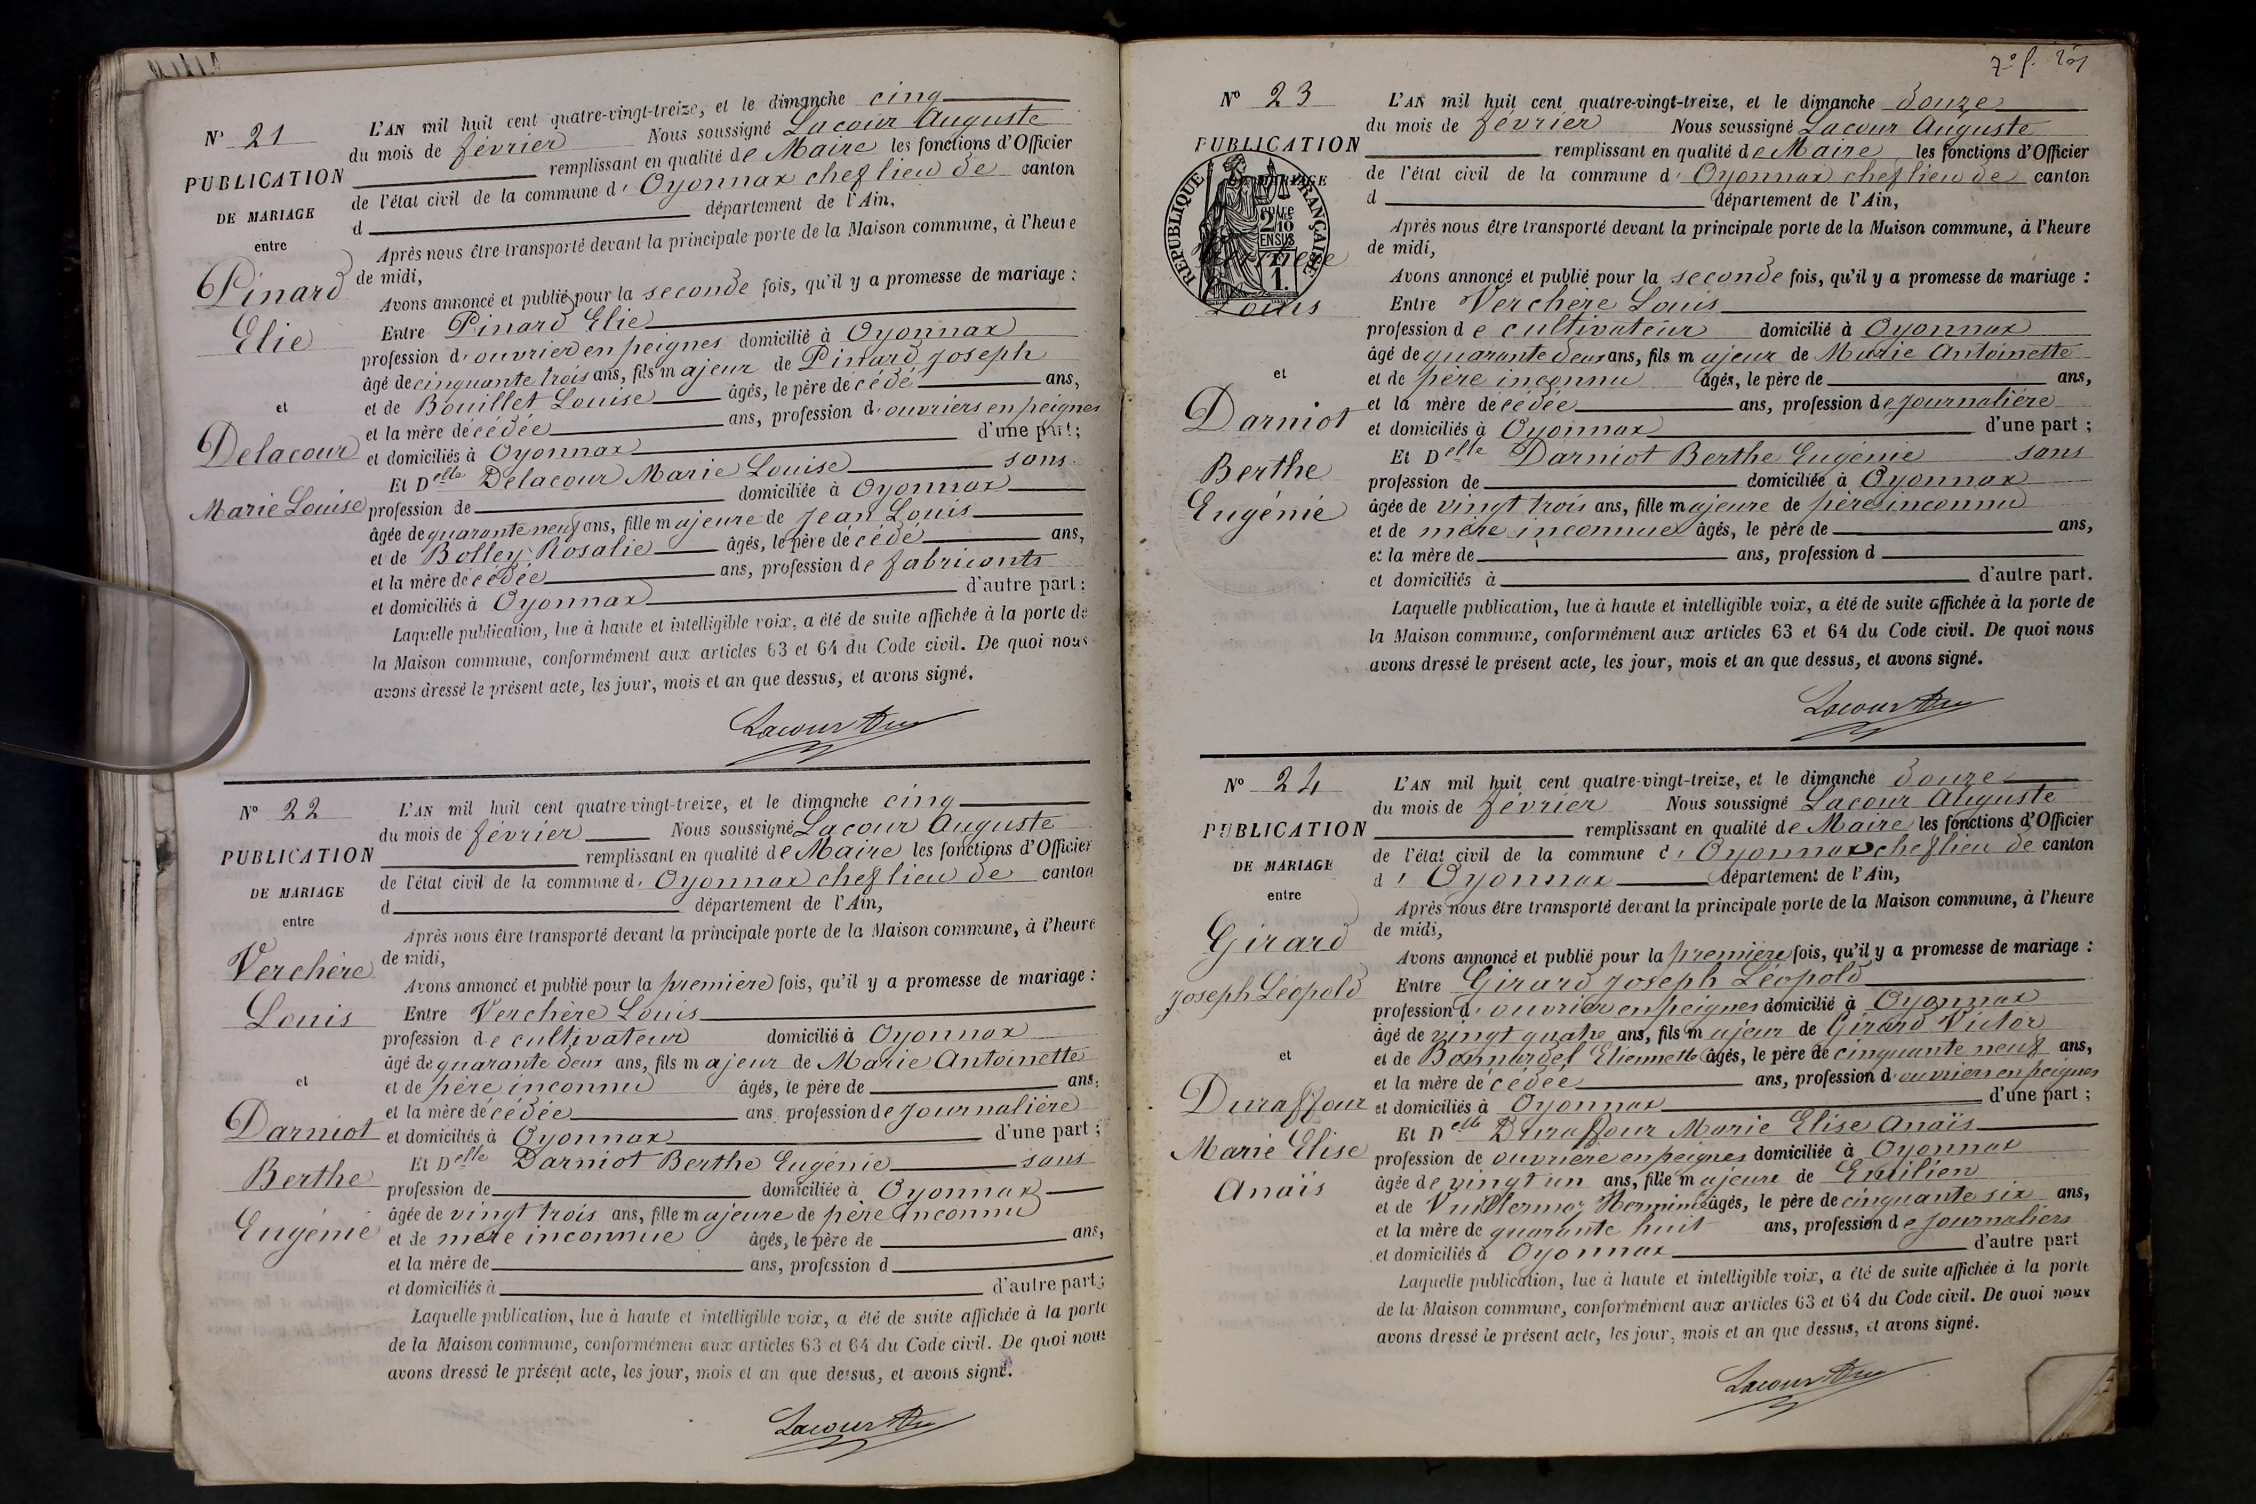 N° 21
PUBLICATION
DE MARIAGE
entre
Pinard
Elie
et
Delacour
Marie Louise
L'AN mil huit cent quatre-vingt-treize, et le dimanche cinq
du mois de février Nous soussigné Lacour Auguste
remplissant en qualité de Maire les fonctions d'Officier
de l'état civil de la commune d' Oyonnax chef lieu de canton
d département de l'Ain,
Après nous être transporté devant la principale porte de la Maison commune, à l'heure
de midi,
Avons annoncé et publié pour la seconde fois, qu'il y a promesse de mariage :
Entre Pinard Elie
profession d' ouvrier en peignes domicilié à Oyonnax
âgé de cinquante trois ans, fils majeur de Pinard Joseph
et de Bouillet Louise âgés, le père décédé ans,
et la mère décédée ans, profession d'ouvriers en peignes
et domiciliés à Oyonnax d'une part;
Et Delle Delacour Marie Louise sans
profession de domiciliée à Oyonnax
âgée de quarante neuf ans, fille majeure de Jean Louis
et de Bolley Rosalie âgés, le père décédé ans,
et la mère décédée ans, profession de fabricants
et domiciliés à Oyonnax d'autre part:
Laquelle publication, lue à haute et intelligible voix, a été de suite affichée à la porte de
la Maison commune, conformément aux articles 63 et 64 du Code civil. De quoi nous
avons dressé le présent acte, les jour, mois et an que dessus, et avons signé.
Lacour Aug
N° 22
PUBLICATION
DE MARIAGE
entre
Verchère
Louis
et
Darniot
Berthe
Eugénie
L'AN mil huit cent quatre vingt-treize, et le dimanche cinq
du mois de février Nous soussigné Lacour Auguste
remplissant en qualité de Maire les fonctions d'Officier
de l'état civil de la commune d' Oyonnax chef lieu de canton
d département de l'Ain,
Après nous être transporté devant la principale porte de la Maison commune, à l'heure
de midi,
Avons annoncé et publié pour la première fois, qu'il y a promesse de mariage :
Entre Verchère Louis
profession de cultivateur domicilié à Oyonnax
âgé de quarante deux ans, fils majeur de Marie Antoinette
et de père inconnu âgés, le père de ans,
et la mère décédée ans, profession de journalière
et domiciliés à Oyonnax d'une part ;
Et Delle Darniot Berthe Eugénie sans
profession de domiciliée à Oyonnax
âgée de vingt trois ans, fille majeure de père inconnu
et de mère inconnue âgés, le père de ans,
et la mère de ans, profession d
et domiciliés à d'autre part;
Laquelle publication, lue à haute et intelligible voix, a été de suite affichée à la porte
de la Maison commune, conformément aux articles 63 et 64 du Code civil. De quoi nous
avons dressé le présent acte, les jour, mois et an que dessus, et avons signé.
Lacour Aug
7e f.
N° 23
PUBLICATION
DE MARIAGE
entre
RÉPUBLIQUE FRANÇAISE
2/10
EN SUS
1.
Louis
et
Darniot
Berthe
Eugénie
L'AN mil huit cent quatre-vingt-treize, et le dimanche douze
du mois de février Nous soussigné Lacour Auguste
remplissant en qualité de Maire les fonctions d'Officier
de l'état civil de la commune d' Oyonnax chef lieu de canton
d département de l'Ain,
Après nous être transporté devant la principale porte de la Maison commune, à l'heure
de midi,
Avons annoncé et publié pour la seconde fois, qu'il y a promesse de mariage :
Entre Verchère Louis
profession de cultivateur domicilié à Oyonnax
âgé de quarante deux ans, fils majeur de Marie Antoinette
et de père inconnu âgés, le père de ans,
et la mère décédée ans, profession de journalière
et domiciliés à Oyonnax d'une part ;
Et Delle Darniot Berthe Eugénie sans
profession de domiciliée à Oyonnax
âgée de vingt trois ans, fille majeure de père inconnu
et de mère inconnue âgés, le père de ans,
et la mère de ans, profession d
et domiciliés à d'autre part.
Laquelle publication, lue à haute et intelligible voix, a été de suite affichée à la porte de
la Maison commune, conformément aux articles 63 et 64 du Code civil. De quoi nous
avons dressé le présent acte, les jour, mois et an que dessus, et avons signé.
Lacour Aug
N° 24
PUBLICATION
DE MARIAGE
entre
Girard
Joseph Léopold
et
Duraffour
Marie Elise
Anaïs
L'AN mil huit cent quatre-vingt-treize, et le dimanche douze
du mois de février Nous soussigné Lacour Auguste
remplissant en qualité de Maire les fonctions d'Officier
de l'état civil de la commune d' Oyonnax chef lieu de canton
d' Oyonnax département de l'Ain,
Après nous être transporté devant la principale porte de la Maison commune, à l'heure
de midi,
Avons annoncé et publié pour la première fois, qu'il y a promesse de mariage :
Entre Girard Joseph Léopold
profession d' ouvrier en peignes domicilié à Oyonnax
âgé de vingt quatre ans, fils majeur de Girard Victor
et de Bonnardel Etiennette âgés, le père de cinquante neuf ans,
et la mère décédée ans, profession d'ouvriers en peignes
et domiciliés à Oyonnax d'une part ;
Et Delle Duraffour Marie Elise Anaïs
profession de ouvrière en peignes domiciliée à Oyonnax
âgée de vingt un ans, fille majeure de Emilien
et de Vuillermoz Hermine âgés, le père de cinquante six ans,
et la mère de quarante huit ans, profession de journaliers
et domiciliés à Oyonnax d'autre part
Laquelle publication, lue à haute et intelligible voix, a été de suite affichée à la porte
de la Maison commune, conformément aux articles 63 et 64 du Code civil. De quoi nous
avons dressé le présent acte, les jour, mois et an que dessus, et avons signé.
Lacour Aug